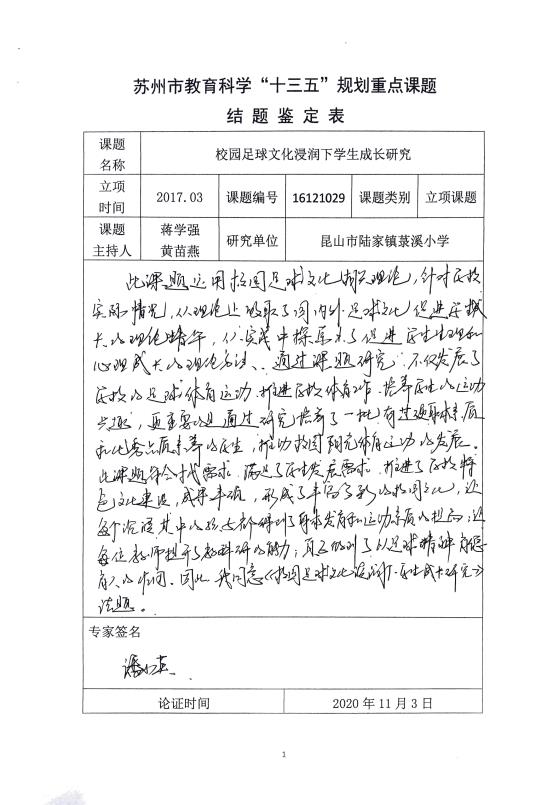 苏州市教育科学“十三五”规划重点课题
结 题 鉴 定 表
课题名称 校园足球文化浸润下学生成长研究
立项时间 2017.03 课题编号 16121029 课题类别 立项课题
课题主持人 蒋学强 黄苗燕 研究单位 昆山市陆家镇菉溪小学
此课题运用校园足球文化相关理论,针对学校
实际情况,从理论上吸取了国内外足球文化促进学
大的理论精华,从实践中探索了促进学生生理和
心理成长的理论方法。通过课题研究,不仅发展了
学校的足球体育运动,推进学校体育工作,培养学生的运动
兴趣,更重要的是通过研究培养了一批有
质素养的学生,推动校园阳光体育运动的发展。
此课题符合时代需求,满足了学生发展需求,推进了学校特
色文化建设,成果丰硕,形成了丰富多彩的校园文化,让
每个沉浸其中的孩子都得到了身体发育和运动素质的提高;让
每位教师提升了教科研的能力;真正做到了以足球精神
育人的作用。因此,我同意《校园足球文化浸润下学生成长研究》
结题。
专家签名
论证时间 2020 年 11 月 3 日
1